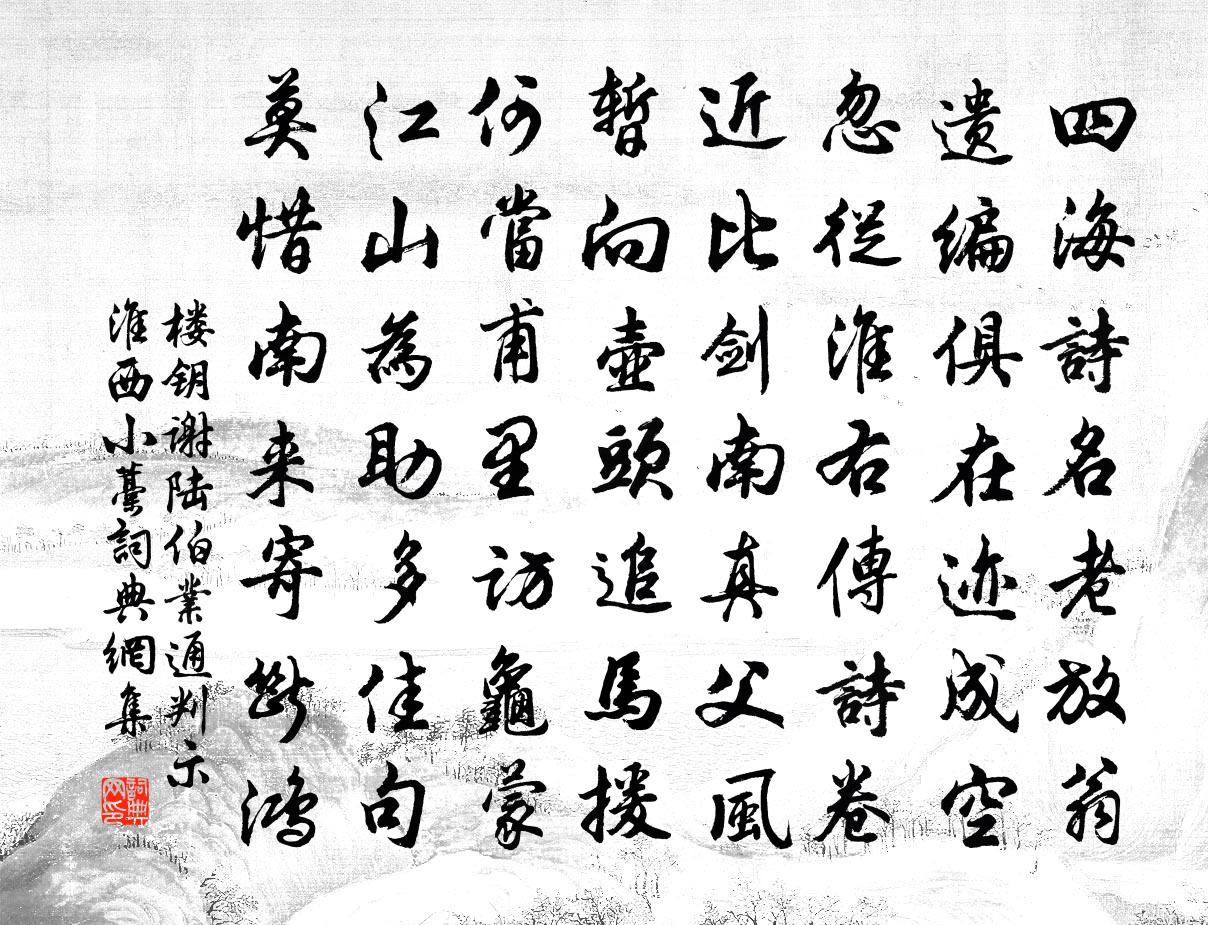 四海詩名老放翁
遺编俱在迹成空
忽從淮右傳詩卷
近比剑南真父風
暫向壺頭追馬援
何當甫里訪龜蒙
江山為助多佳句
莫惜南来寄断鸿
楼钥谢陆伯業通判示
淮西小藁詞典網集
詞典网印